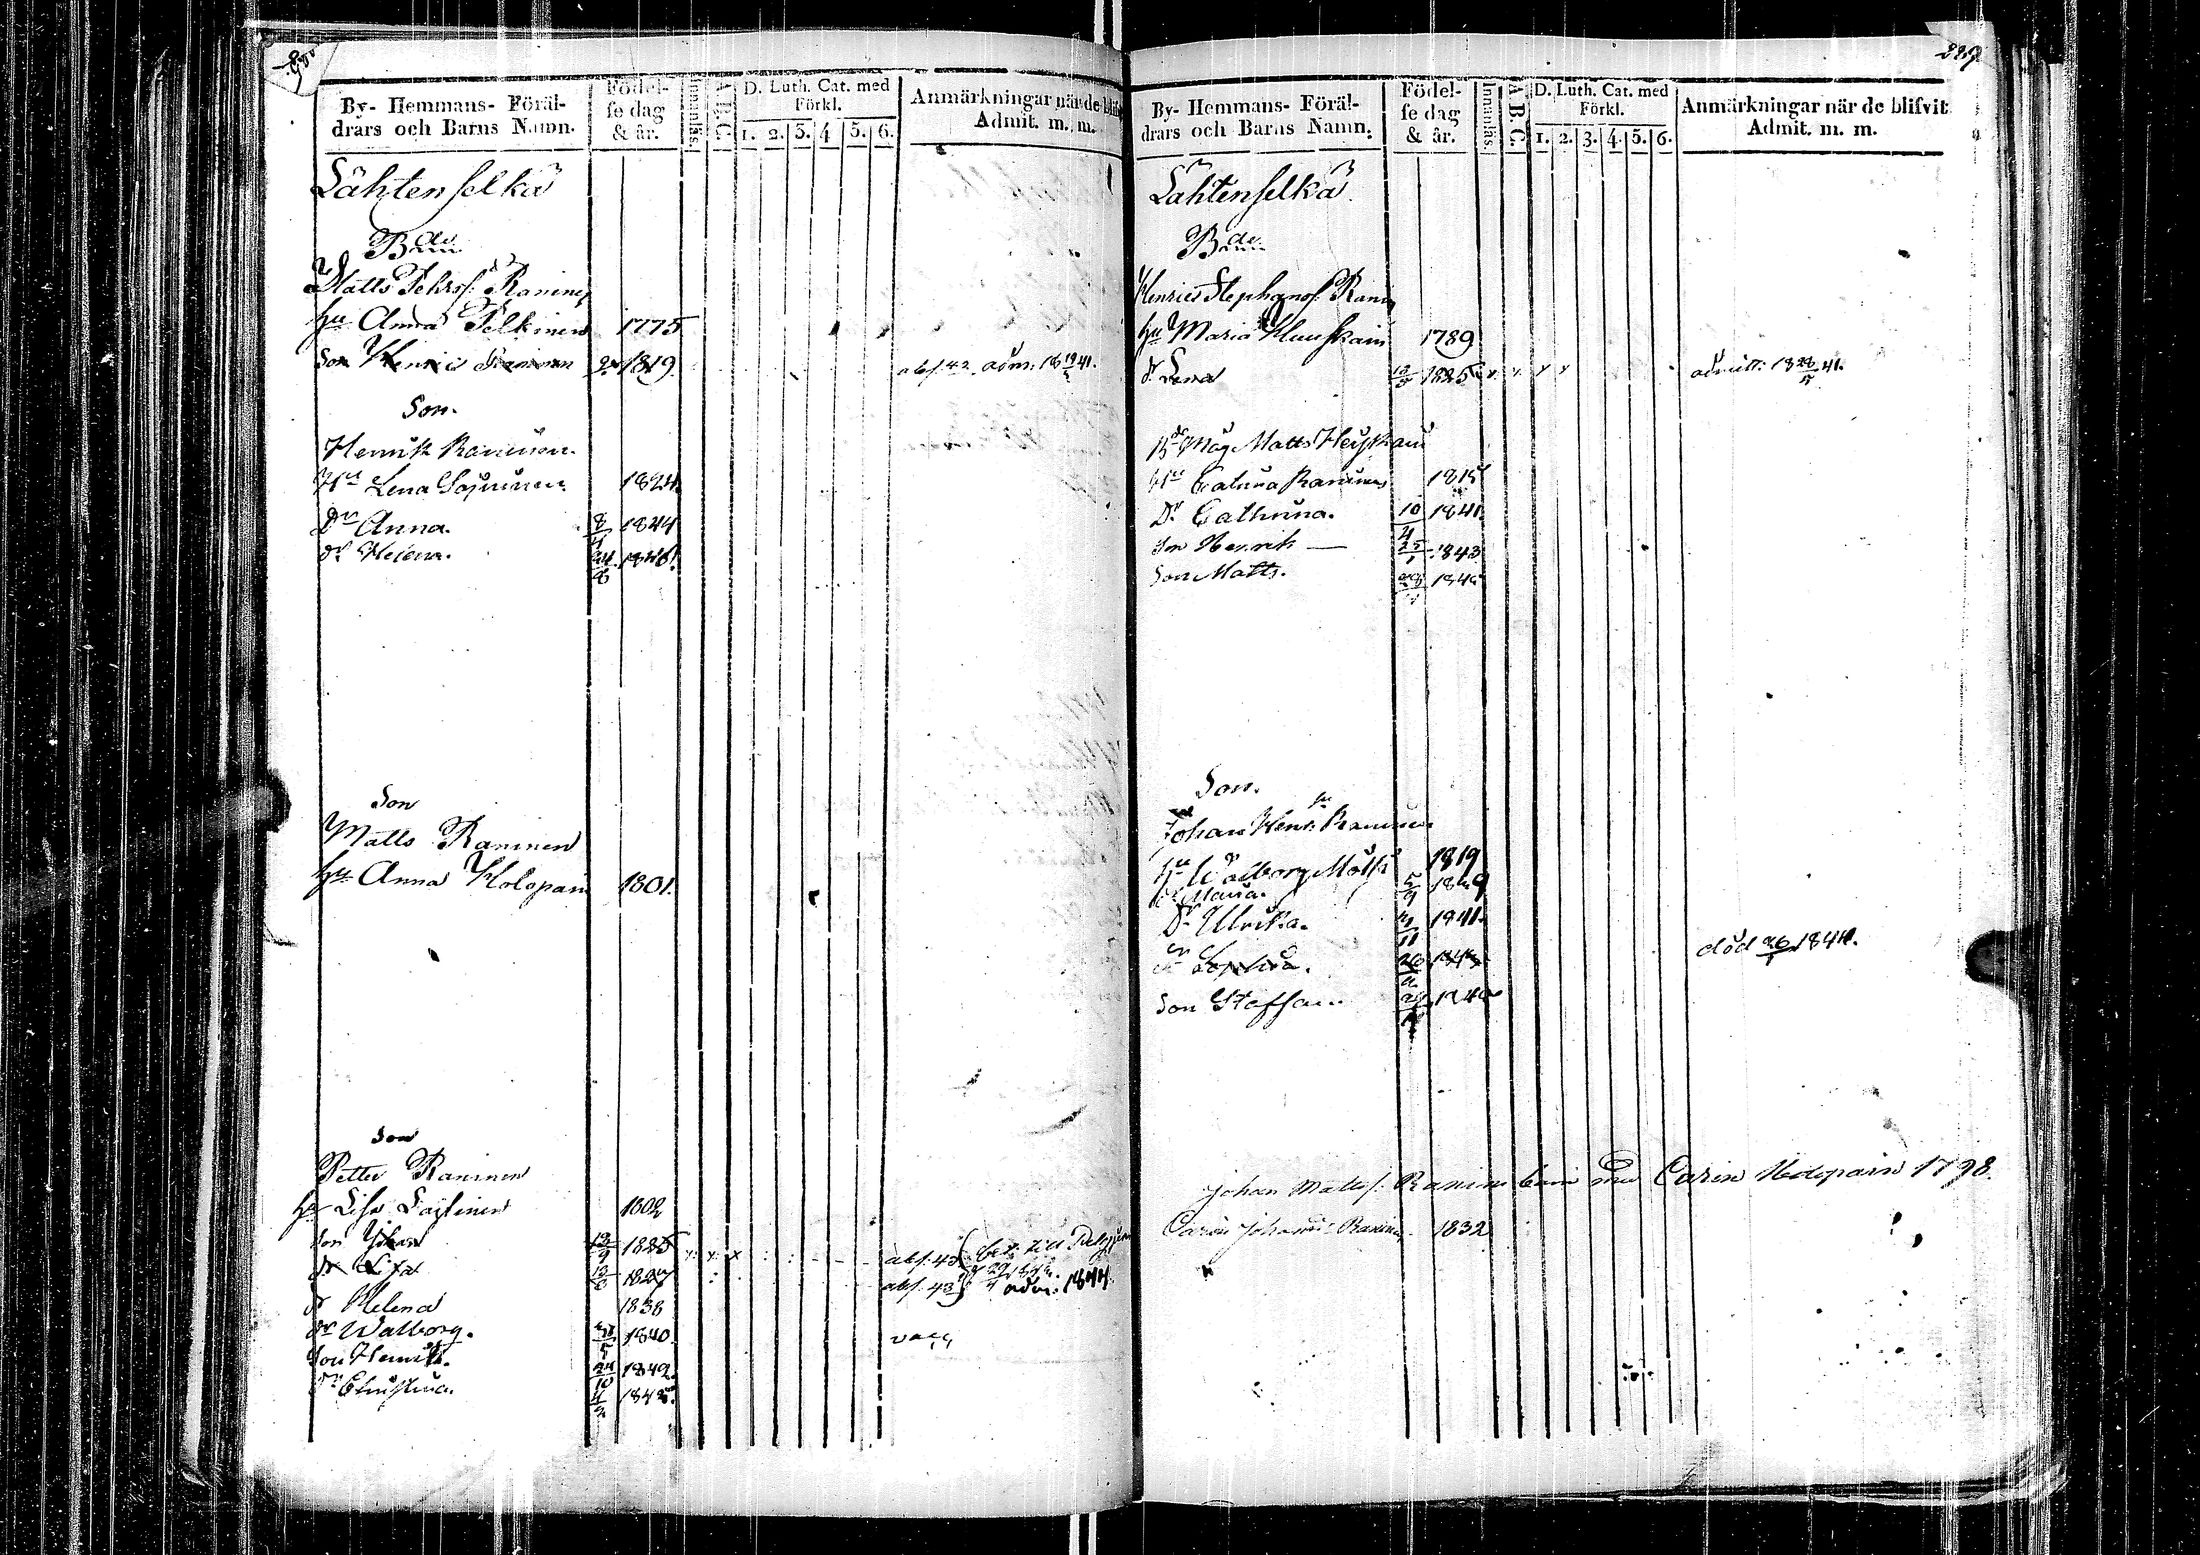 By- Hemmans- Föräl-
drars och Barns Namn.
Födel-
se dag
& år.
Innanläs.
A B C.
D. Luth. Cat. med
Förkl.
1. 2. 3. 4 5. 6.
Anmärkningar när de blifv
Admit. m. m.
Lähtenselkä
Bde
Matts Pehrs: Raninen
Hu Anna Pelkinen 1775
Son Henric Raninen 1819. abs. 42 adm: 18 19/5 41.
Son.
Henrik Raninen.
Hu Lena 1824.
Dr Anna. 8/4 1844
dr Helena. 24/8 1846.
Son
Matts Raninen
Hu Anna Holopain 1801.
Son
Petter Raninen
Hu Lisa 1802
Son Johan 13/9 1825 x x x abs: 43 bet: till
dr Lisa 1827 abs: 43 adm: 1844.
dr Helena 1838
dr Walborg. 1840. vacc
Son Henrik. 24/10 1842.
dr Christina. 4/2 1845.
By- Hemmans- Föräl-
drars och Barns Namn.
Födel-
se dag
& år.
Innanläs.
A B C.
D. Luth. Cat. med
Förkl.
1. 2. 3. 4. 5. 6.
Anmärkningar när de blifvit
Admit. m. m.
Lähtenselkä.
Bde
Henrics Stephanos: Ranin
Hu Maria 1789
dr Lena 1825 x x x x admitt: 18 28/5 41.
Bde Måg Matts Heiskain
Hu Catrina Raninen 1815
Dr Cathrina. 10/4 1841.
Son Henrik — 25/1 1843
Son Matts. 1845
Son.
Johan Henr: Raninen
Hu Walborg 1819
dr Maria. 5/9 1840
Dr Ulrika. 1841.
dr Sophia. död 26/1 1844.
Son Staffan.
Johan Matts: Raninens barn med Carin Holopain 1798.
Carin Johansdr Raninen 1832